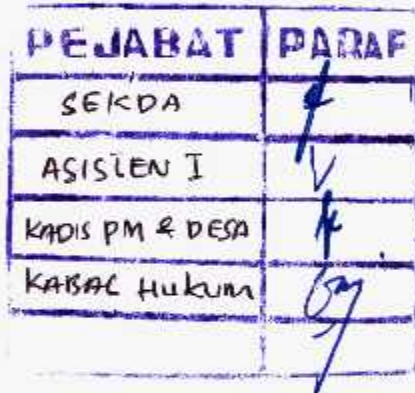 PEJABAT PARAF
SEKDA
ASISTEN I
KADIS PM & DESA
KABAG HUKUM